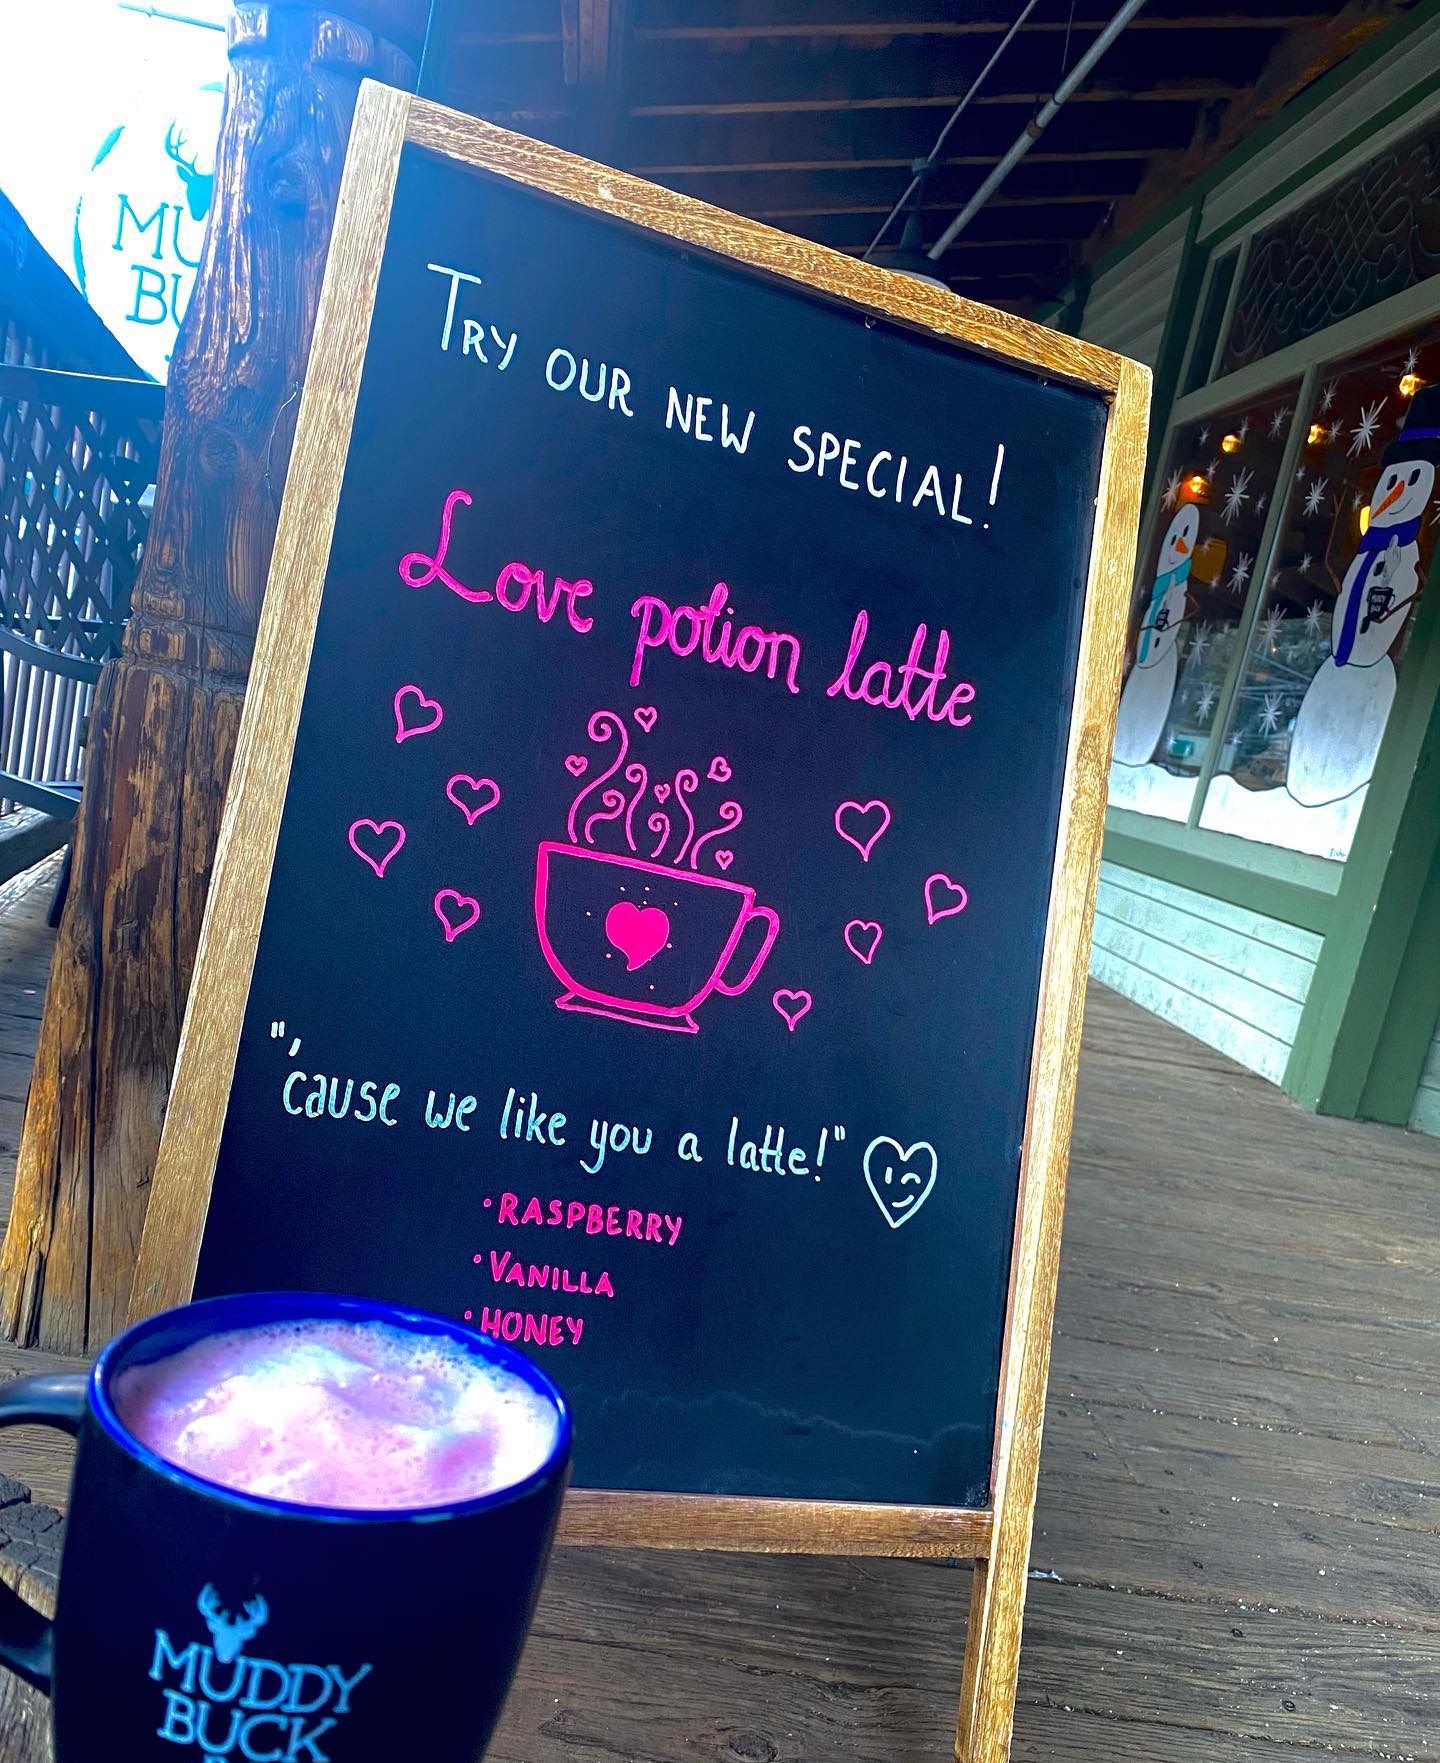 MU
BU
TRY OUR NEW SPECIAL!
Love potion latte
"'cause we like you a latte!"
• RASPBERRY
• VANILLA
• HONEY
MUDDY
BUCK
MUDDY
BUCK